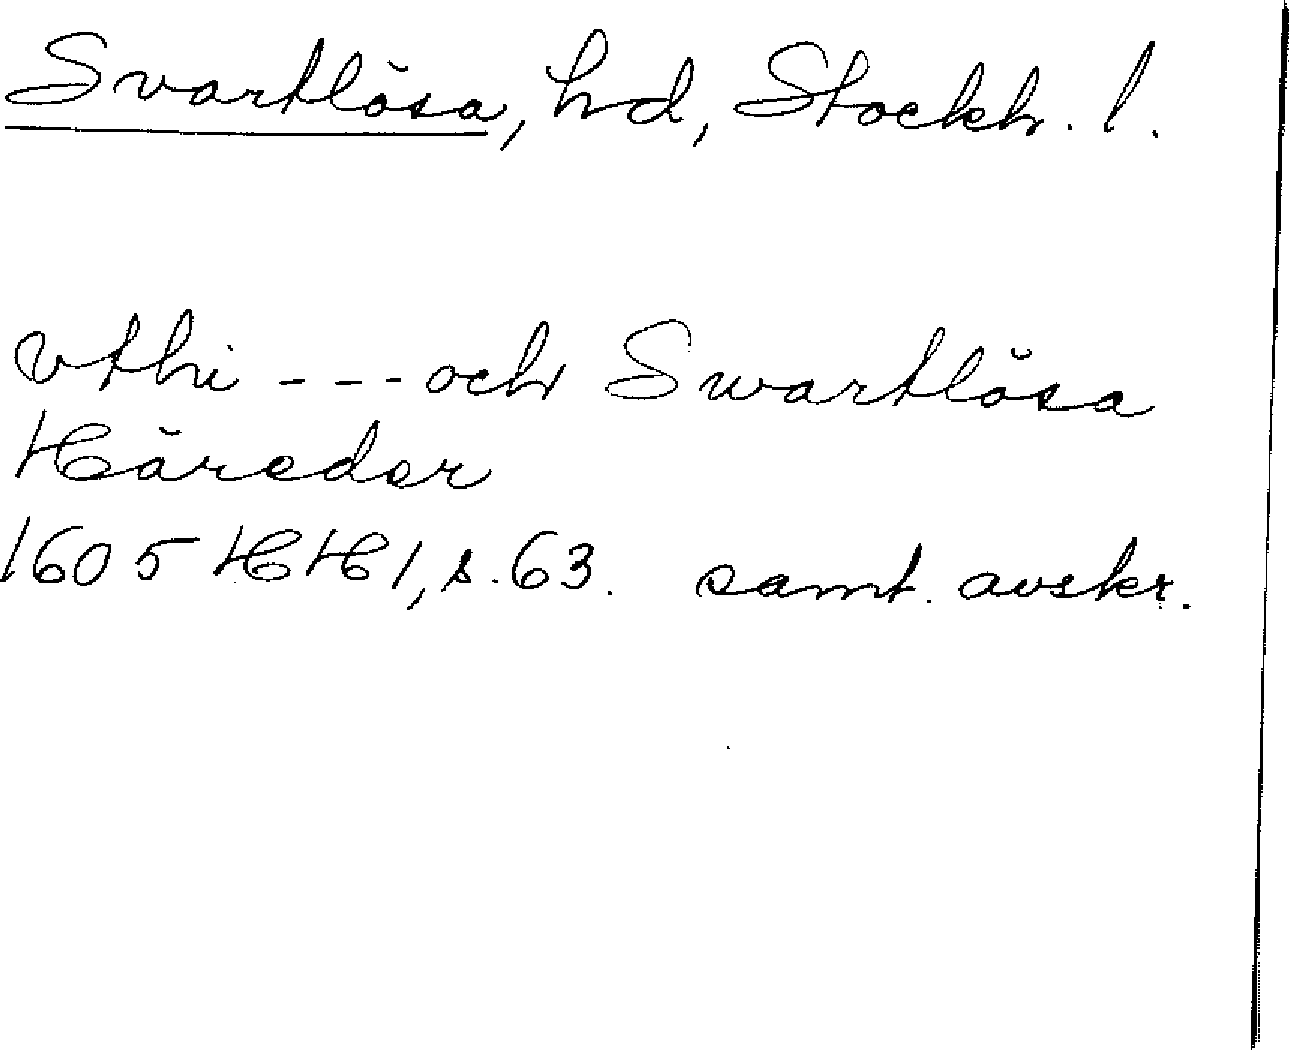 Svartlösa, hd, Stockh. l.
vthi - - - och Swartlösa
Häreder
1605 HH 1, s. 63. samt. avskr.